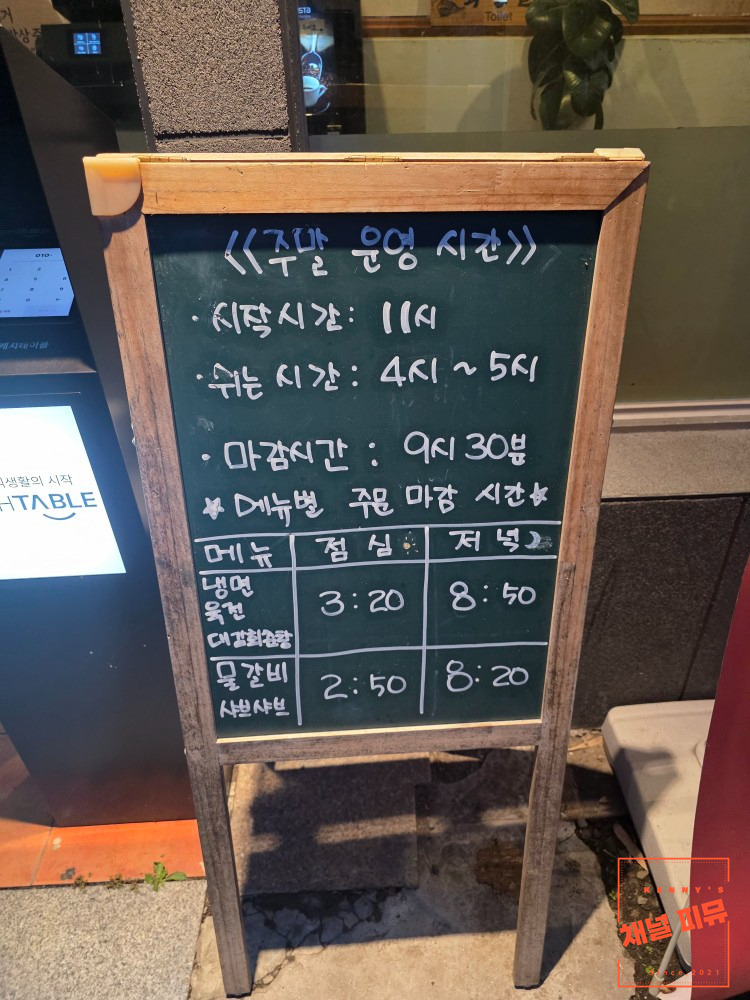 Toilet
010-
캐치테이블
생활의 시작
TABLE
<<주말 운영 시간>>
· 시작시간: 11시
· 쉬는 시간: 4시 ~ 5시
· 마감시간: 9시 30분
☆ 메뉴별 주문 마감 시간 ☆
메뉴 점심 저녁
냉면
육전 3:20 8:50
물갈비 2:50 8:20
샤브샤브
KANNY'S
채널 피뮤
Since 2021